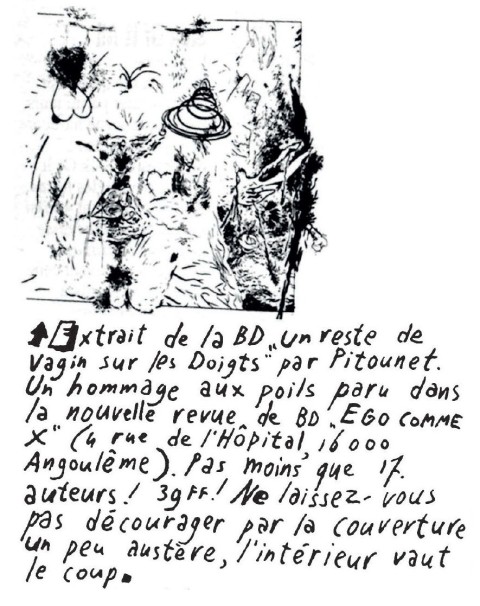 ↑Extrait de la BD „un reste de
vagin sur les Doigts" par Pitounet.
Un hommage aux poils paru dans
la nouvelle revue de BD „EGO COMME
X" (4 rue de l'Hôpital, 16000
Angoulême). Pas moins que 17.
auteurs! 39FF! Ne laissez-vous
pas décourager par la couverture
un peu austère, l'intérieur vaut
le coup.